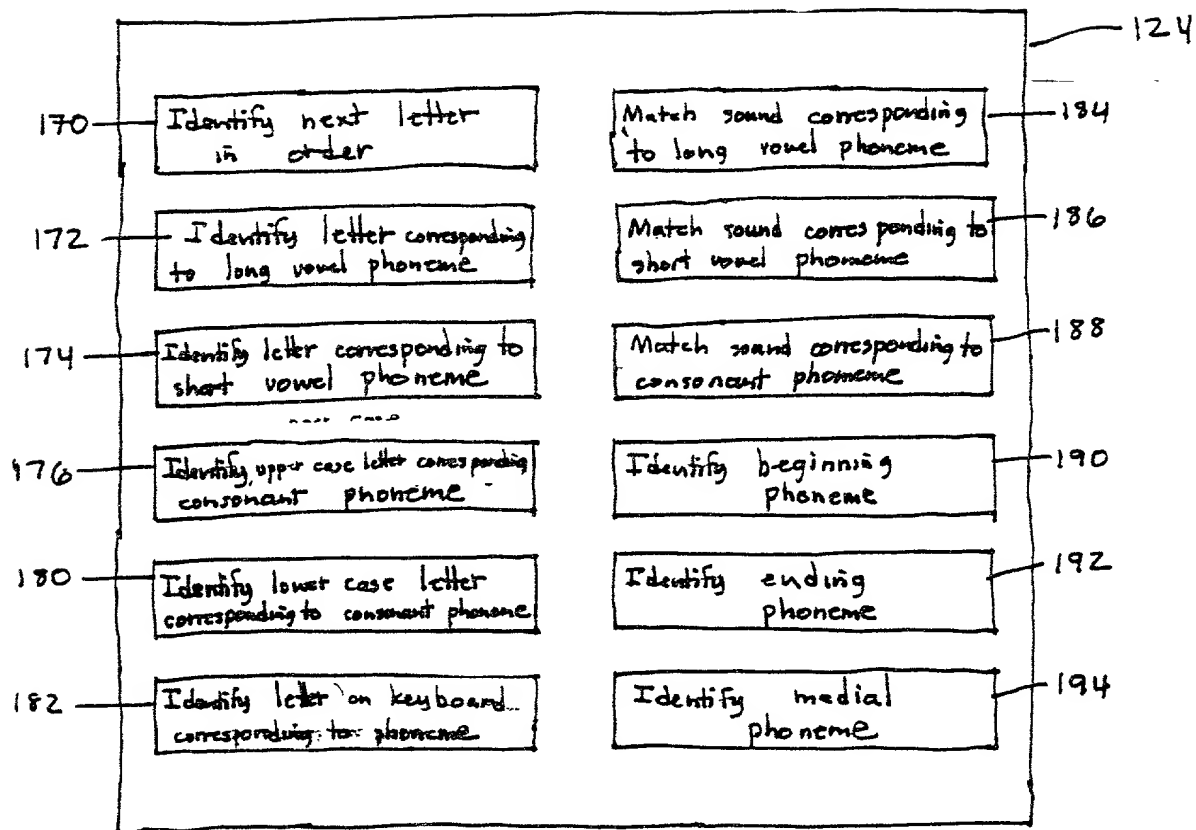 124
170
Identify next letter
in order
172
Identify letter corresponding
to long vowel phoneme
174
Identify letter corresponding to
short vowel phoneme
176
Identify upper case letter corresponding
consonant phoneme
180
Identify lower case letter
corresponding to consonant phoneme
182
Identify letter on keyboard
corresponding to phoneme
Match sound corresponding
to long vowel phoneme
184
Match sound corresponding to
short vowel phomeme
186
Match sound corresponding to
consonant phomeme
188
Identify beginning
phoneme
190
Identify ending
phoneme
192
Identify medial
phoneme
194